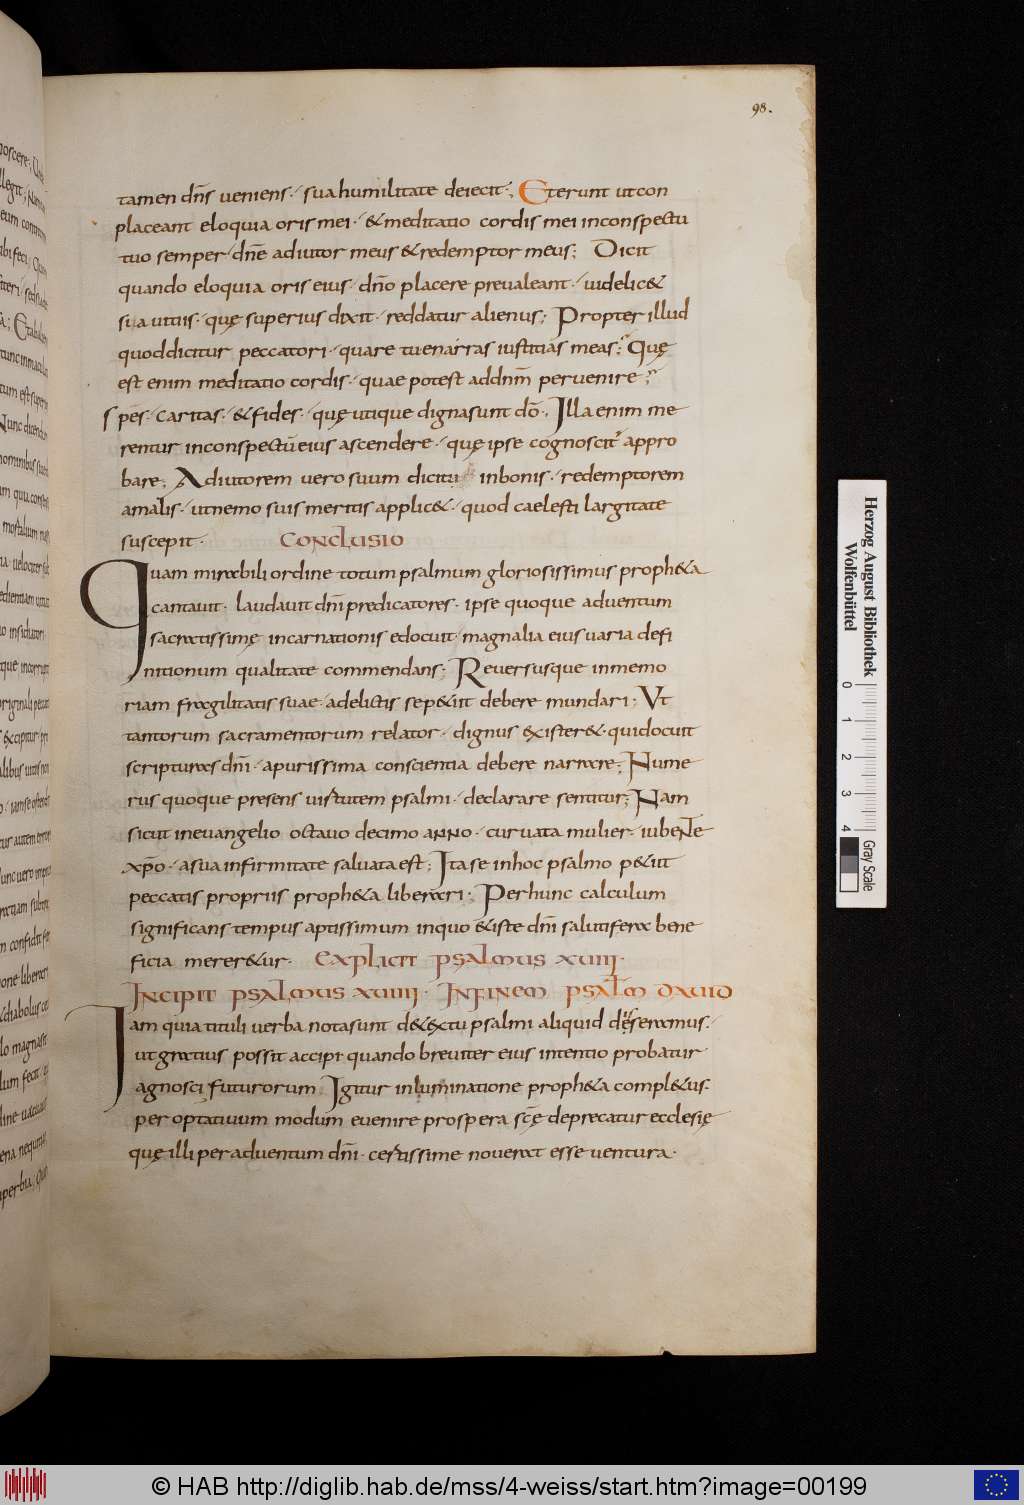 98.
tamen dn̅s ueniens· sua humilitate deiecit·; Et erunt ut con
placeant eloquia oris mei· & meditatio cordis mei inconspectu
tuo semper· dn̅e adiutor meus & redemptor meus; Dicit
quando eloquia oris eius· dn̅o placere preualeant· uidelic&
sua uitiis· quę superius dixit· reddatur alienus; Propter illud
quod dicitur peccatori· quare tu enarras iustitias meas; Quę
est enim meditatio cordis· quae potest ad dnm̅ peruenire;
spes· caritas· & fides· quę utique digna sunt do̅·, Illa enim me
rentur inconspectu̅ eius ascendere· quę ipse cognoscit appro
bare; Adiutorem uero suum dicit inbonis· redemptorem
amalis· ut nemo suis meritis applic&· quod caelesti largitate
suscepit·
CONCLUSIO
Quam mirabili ordine totum psalmum gloriosissimus proph&a
cantauit· laudauit dn̅i predicatores· ipse quoque aduentum
sacratissimę incarnationis edocuit· magnalia eius uaria defi
nitionum qualitate commendans; Reuersusque inmemo
riam fragilitatis suae· adelictis se p&iit debere mundari; Ut
tantorum sacramentorum relator· dignus existere&· qui docuit
scripturas dn̅i· apurissima conscientia debere narrare; Nume
rus quoque presens uirtutem psalmi· declarare sentitur; Nam
sicut ineuangelio octauo decimo anno· curuata mulier· iubente
xp̅o· asua infirmitate saluata est; Ita se inhoc psalmo p&iit
peccatis propriis proph&a liberari· Per hunc calculum
significans tempus aptissimum in quo & iste dn̅i salutifera bene
ficia merer&ur· EXPLICIT PSALMUS XVIII·
INCIPIT PSALMUS XVIIII· INFINEM PSALM̅ DAVID
Iam quia tituli uerba nota sunt d& extu psalmi aliquid disseramus·
ut gratius possit accipi quando breuiter eius intentio probatur
agnosci futurorum Igitur inluminatione proph&a compl&us·
per optatiuum modum euenire prospera scę̅ deprecatur ecclesię
quę illi per aduentum dn̅i· certissime nouerat esse uentura·
Herzog August Bibliothek
Wolfenbüttel
0 1 2 3 4
Gray Scale
© HAB http://diglib.hab.de/mss/4-weiss/start.htm?image=00199